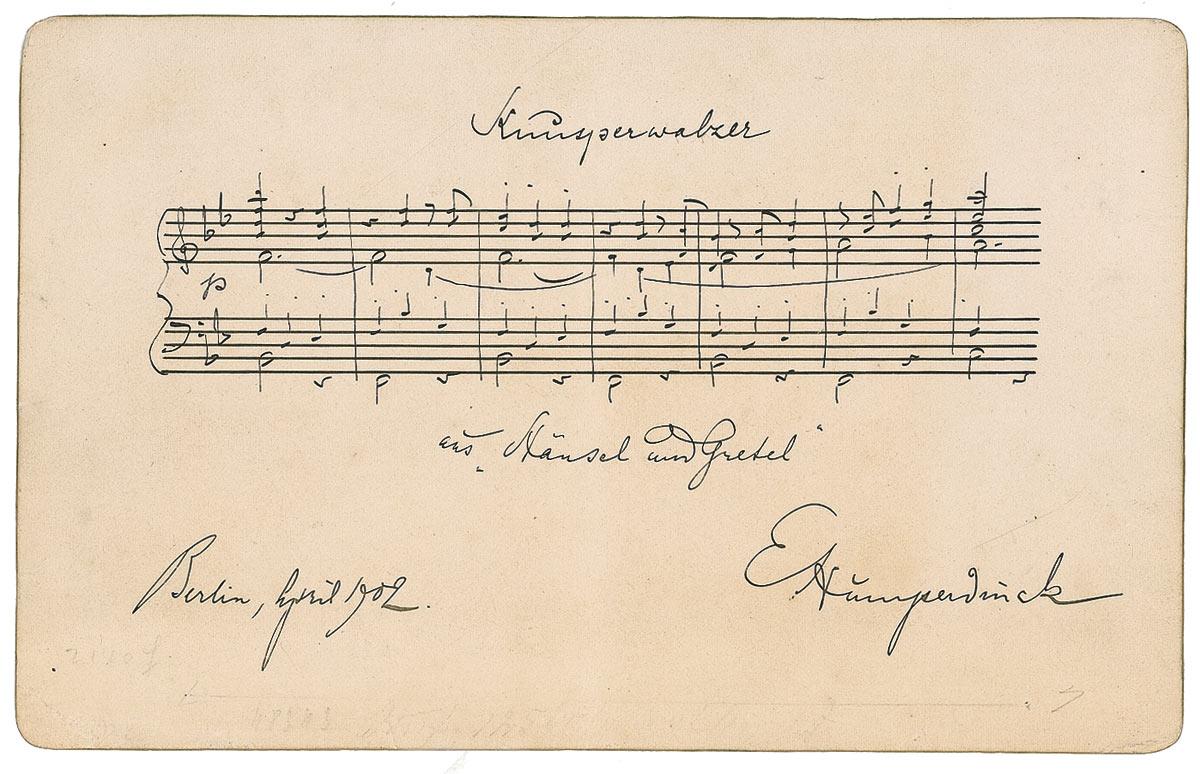 Knusperwalzer
p
aus „Hänsel und Gretel“
Berlin, April 1902.
E Humperdinck